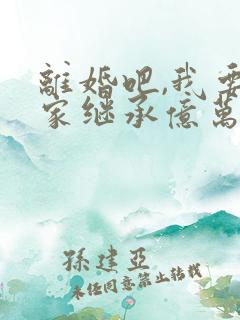 離婚吧,我要
家继承億萬
孫建亞
未任同意禁止转载